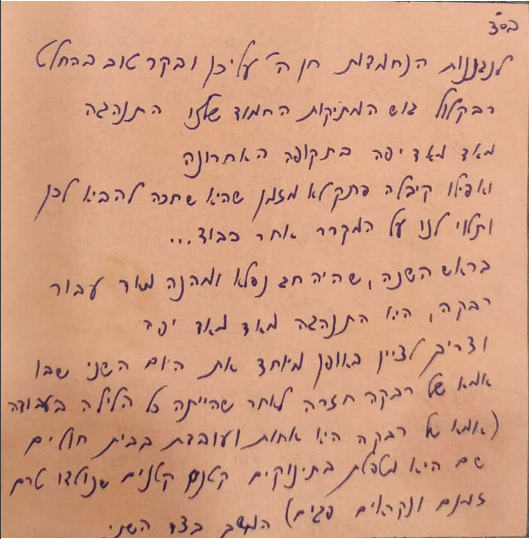 בס"ד
לגננות הנחמדות חן ה' עליכן ובקר טוב בהחלט
רבקלול גוש המתיקות החמוד שלנו התנהגה
מאד מאד יפה בתקופה האחרונה
ואפילו קיבלה פתק לא מזמן שהיא שחכה להביא לכן
ותלוי לנו על המקרר אחר כבוד...
בראש השנה, שהיה חג נפלא ומהנה מאד עבור
רבקה, היא התנהגה מאד מאד יפה
וצריך לציין באופן מיוחד את היום השני שבו
אמא של רבקה חזרה לאחר שהייתה כל הלילה בעבודה
(אמא של רבקה היא אחות ועובדת בבית חולים
שם היא מטפלת בתינוקים קטנים קטנים שנולדו טרם
זמנם ונקראים פגים) המשך בצד השני